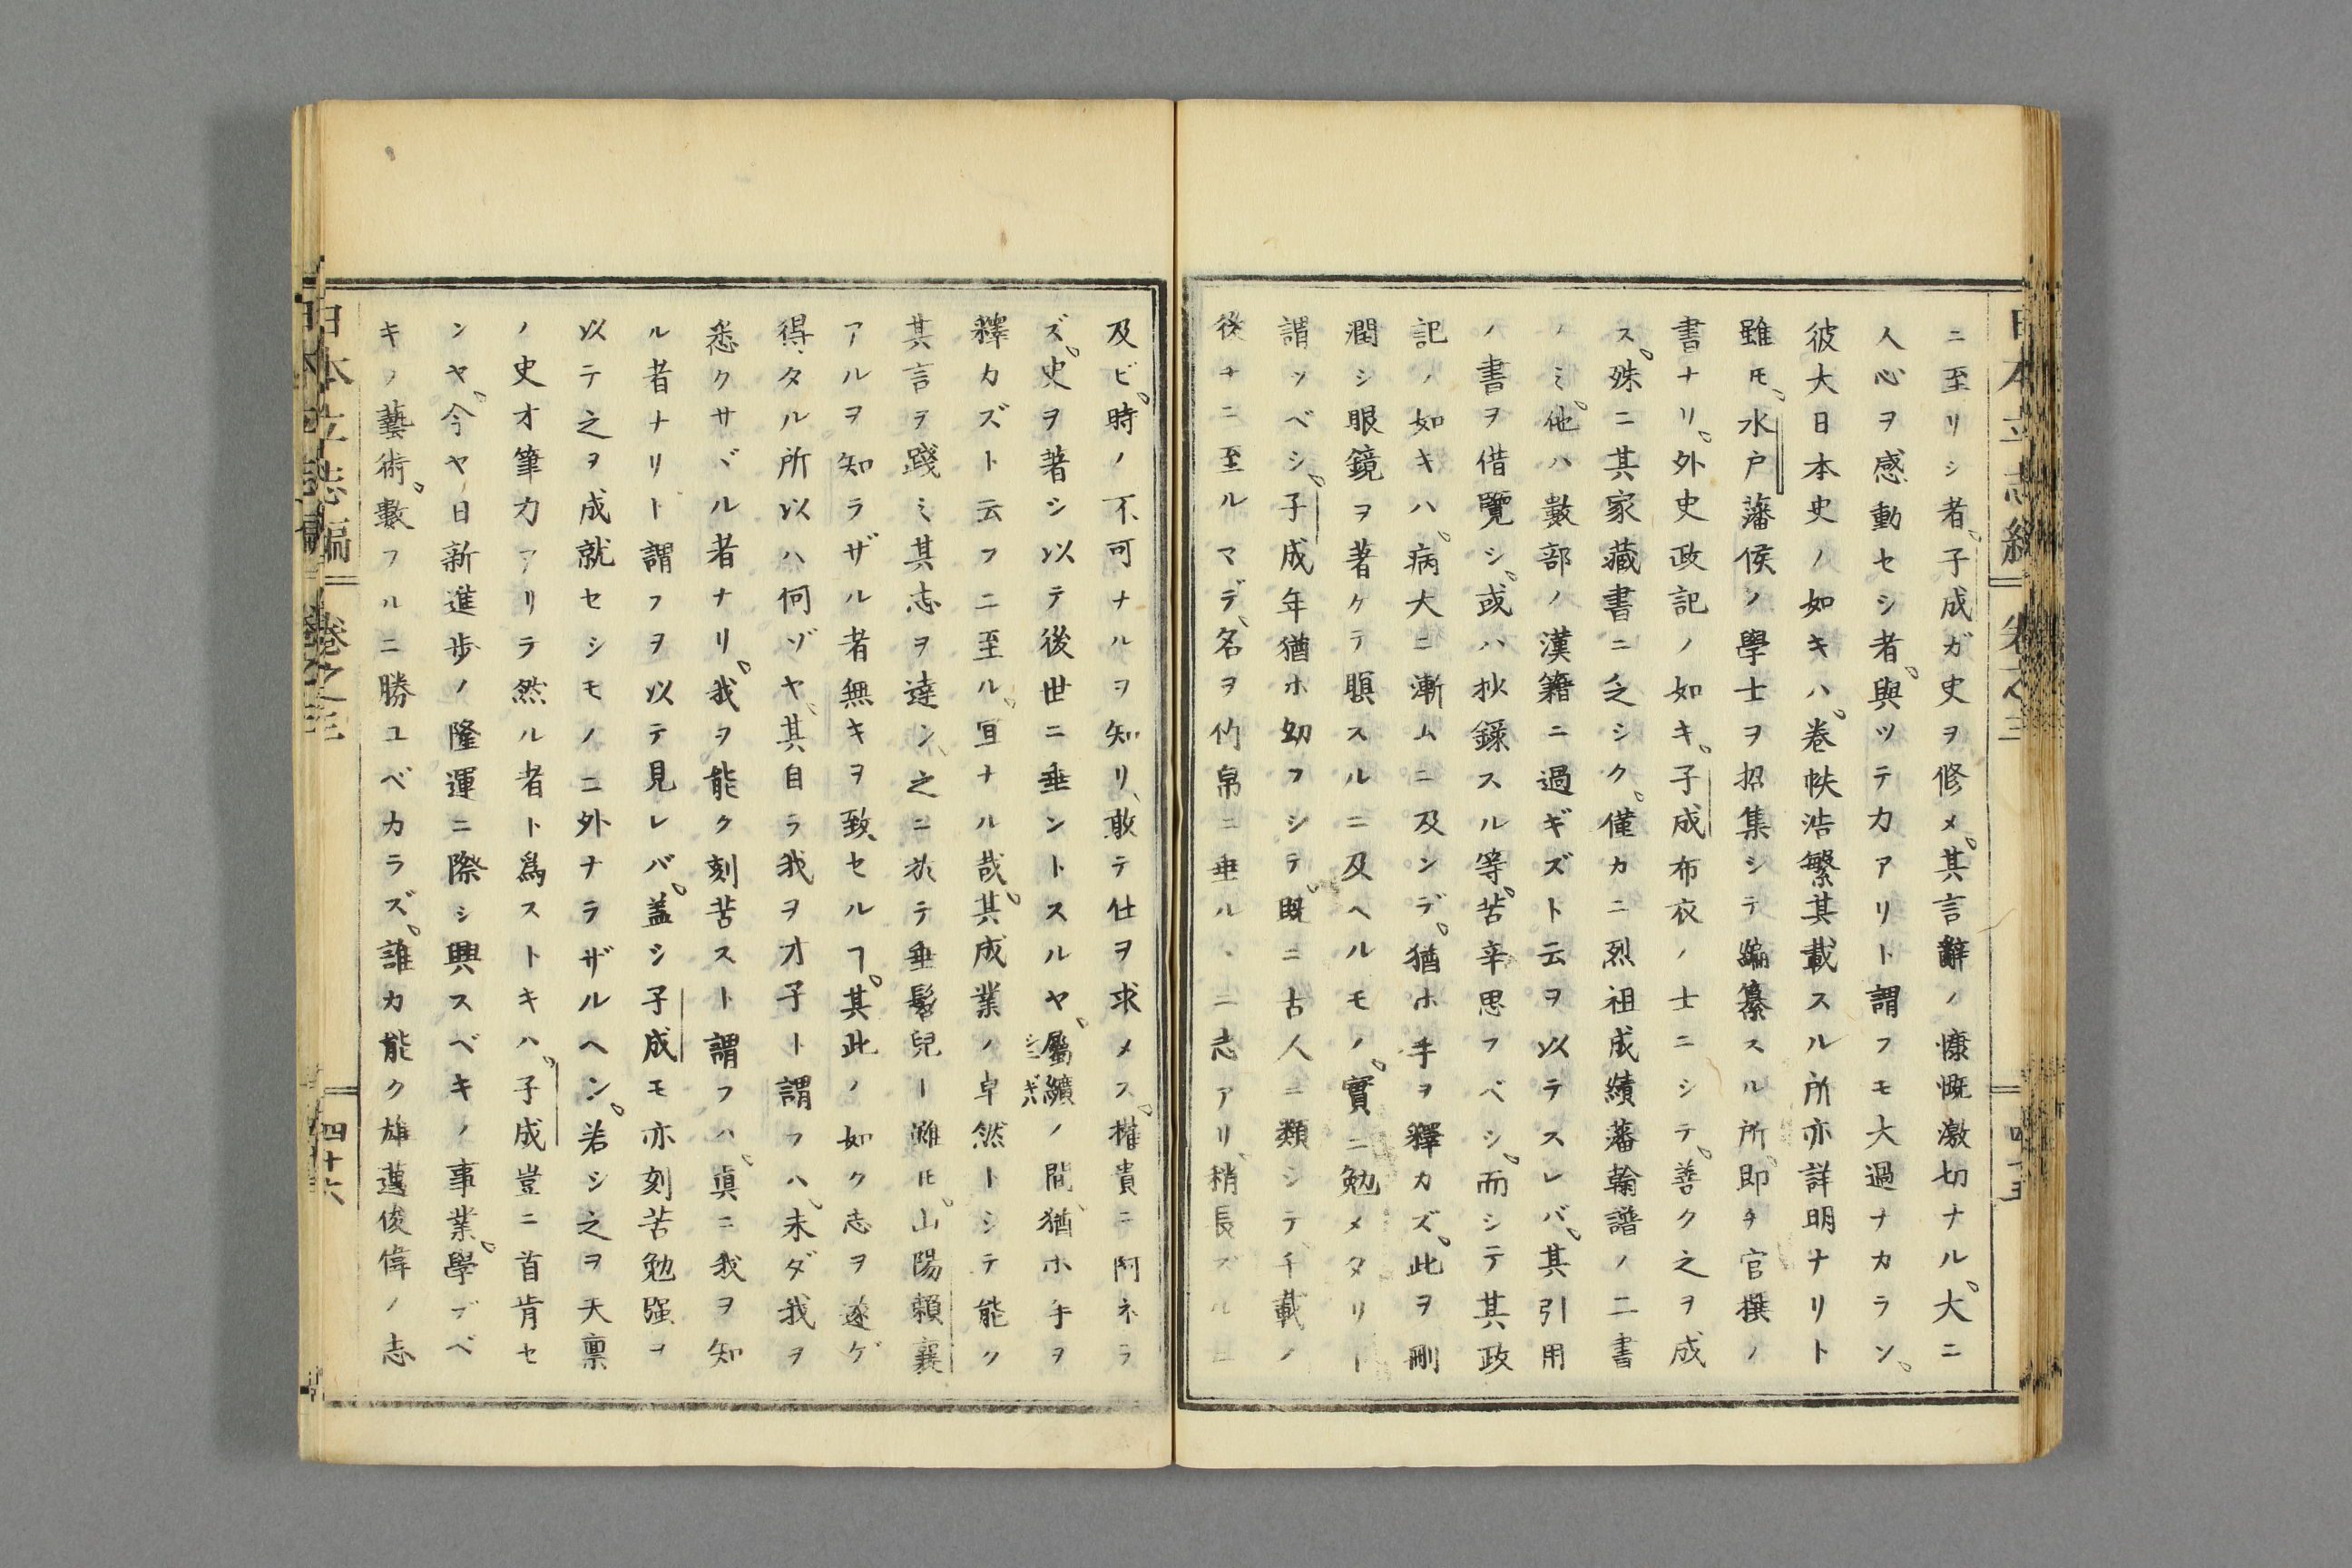 ニ至リシ者、子成ガ史ヲ修メ、其言辭ノ慷慨激切ナル。大ニ
人心ヲ感動セシ者、與ツテカアリト謂フモ大過ナカラン。
彼大日本史ノ如キハ、卷帙浩繁其載スル所亦詳明ナリト
雖𪜈、水戸藩侯ノ學士ヲ招集シテ編纂スル所、即チ官撰ノ
書ナリ。外史政記ノ如キ、子成布衣ノ士ニシテ、善ク之ヲ成
ス。殊ニ其家藏書ニ乏シク、僅カニ烈祖成績藩翰譜ノ二書
ノミ、他ハ數部ノ漢籍ニ過ギズト云ヲ以テスレバ、其引用
ノ書ヲ借覽シ、或ハ抄錄スル等、苦辛思フベシ、而シテ其政
記ノ如キハ、病大ニ漸ムニ及ンデ、猶ホ手ヲ釋カズ、此ヲ刪
潤シ眼鏡ヲ著ケテ瞑スルニ及ヘルモノ、實ニ勉メタリト
謂ツベシ、子成年猶ホ幼フシテ、既ニ古人ニ類シテ千載ノ
後チニ至ルマデ、名ヲ竹帛ニ垂ルヽニ志アリ、稍長ズルニ
日本立志編 卷之三 四十五
及ビ、時ノ不可ナルヲ知リ、敢テ仕ヲ求メス、權貴ニ阿ネラ
ズ、史ヲ著シ以テ後世ニ垂ントスルヤ、屬纊ノ間、猶ホ手ヲ
釋カズト云フニ至ル、宜ナル哉、其成業ノ卓然トシテ能ク
其言ヲ踐ミ其志ヲ達ン、之ニ於テ垂髫兒ト雖𪜈、山陽賴襄
アルヲ知ラザル者無キヲ致セルヿ、其此ノ如ク志ヲ遂ゲ
得タル所以ハ何ゾヤ、其自ラ我ヲ才子ト謂フハ、未ダ我ヲ
悉クサヾル者ナリ、我ヲ能ク刻苦スト謂フハ、眞ニ我ヲ知
ル者ナリト謂フヲ以テ見レバ、蓋シ子成モ亦刻苦勉强ヲ
以テ之ヲ成就セシモノニ外ナラザルヘン。若シ之ヲ天稟
ノ史才筆力アリテ然ル者ト爲ストキハ、子成豈ニ首肯セ
ンヤ。今ヤ日新進歩ノ隆運ニ際シ興スベキノ事業、學ブベ
キノ藝術、數フルニ勝ユベカラズ、誰カ能ク雄邁俊偉ノ志
日本立志編 卷之三 四十六